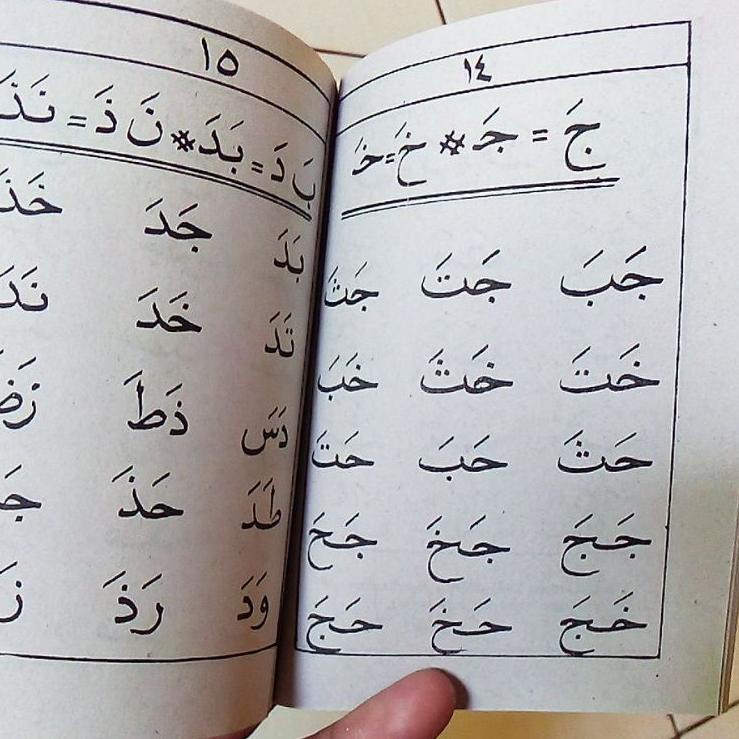 ١٤
جَ = جَـ # خَ = خَـ
جَبَ جَتَ جَثَ
خَتَ خَثَ خَبَ
حَثَ حَبَ حَتَ
جَجَ جَخَ جَحَ
خَجَ حَخَ حَجَ
١٥
بَ دَ = بَدَ # نَ ذَ = نَذَ
بَدَ جَدَ خَذَ
تَدَ خَدَ نَدَ
دَسَ ذَطَ
طَدَ حَذَ
وَدَ رَذَ